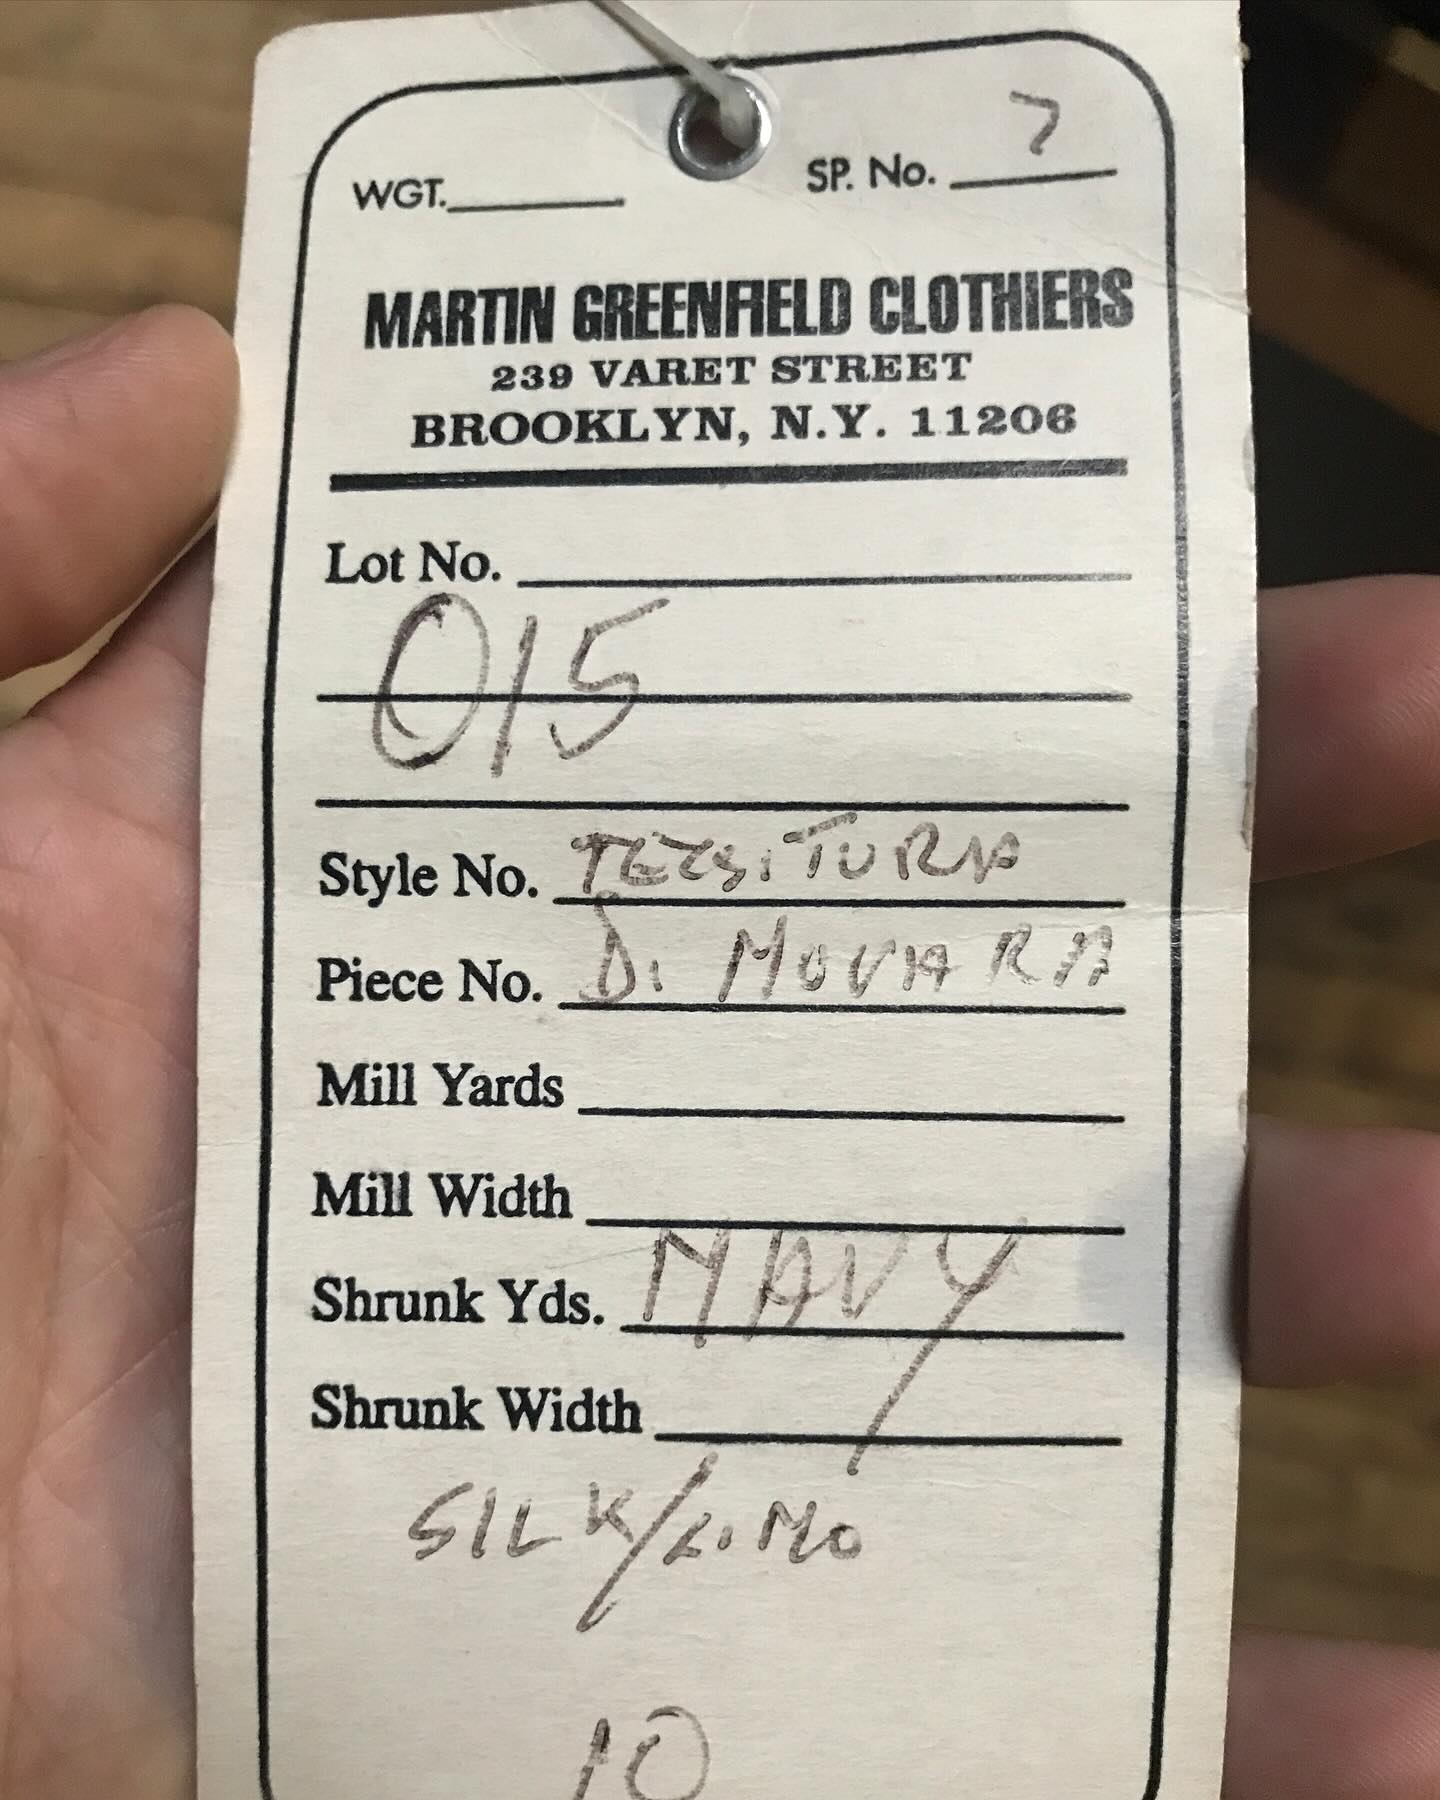 7
WGT. SP. No.
MARTIN GREENFIELD CLOTHIERS
239 VARET STREET
BROOKLYN, N.Y. 11206
Lot No.
015
Style No. TESSiTURA
Piece No. Di NOVARA
Mill Yards
Mill Width
Shrunk Yds. NAVY
Shrunk Width
SILK/LiNO
10